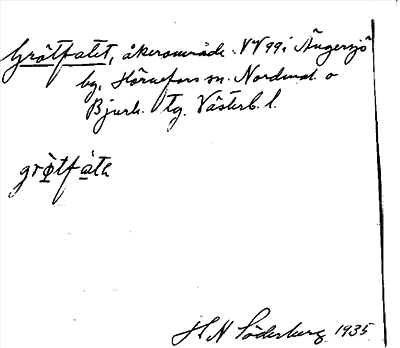 Grötfatet, åkerområde NV 99 i Ängersjö
by, Hörnefors sn. Nordmal. o
Bjurh. tg. Västerb. l.
grötfàtẹ
H N Söderberg 1935